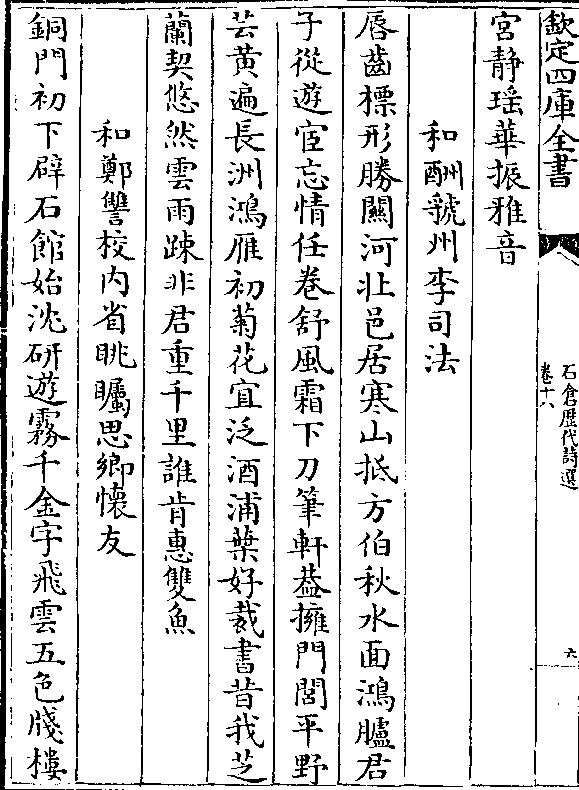 欽定四庫全書
石倉歷代詩選
卷十六
六
宮静瑶華振雅音
和酬虢州李司法
唇齒標形勝關河壮邑居寒山抵方伯秋水面鴻臚君
子從遊宦忘情任卷舒風霜下刀筆軒葢擁門閭平野
芸黄遍長洲鴻雁初菊花宜泛酒浦葉好裁書昔我芝
蘭契悠然雲雨踈非君重千里誰肯惠雙魚
和鄭讐校内省眺矚思鄉懷友
銅門初下辟石館始沈研遊霧千金字飛雲五色牋樓